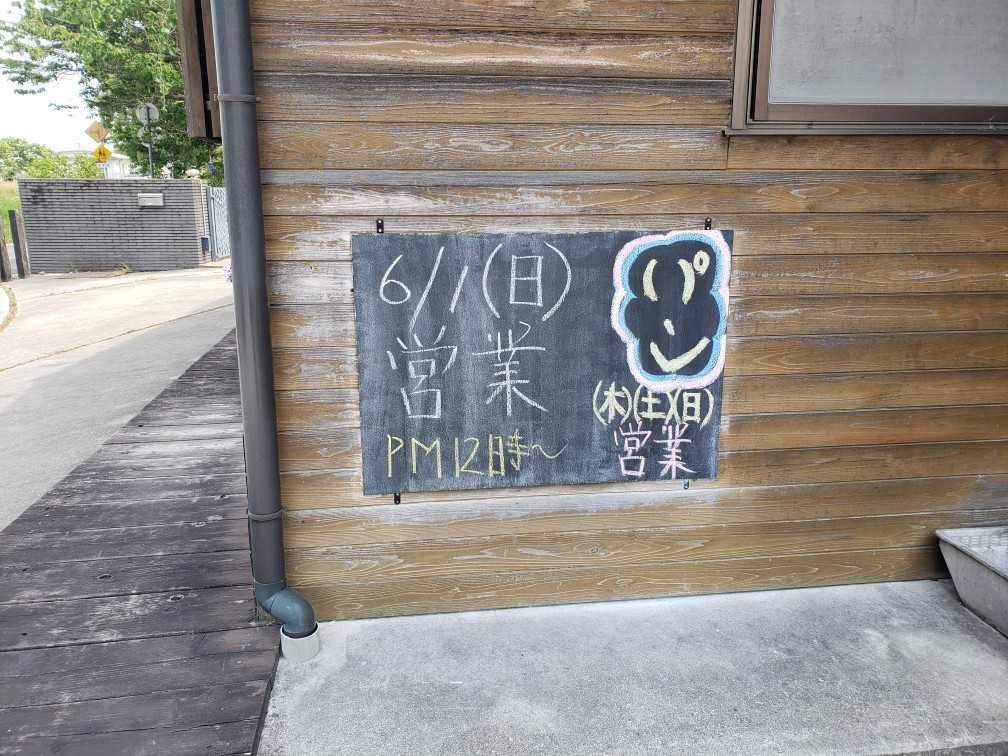 6/1(日)
営業
PM12時〜
パン
(木)(土)(日)
営業